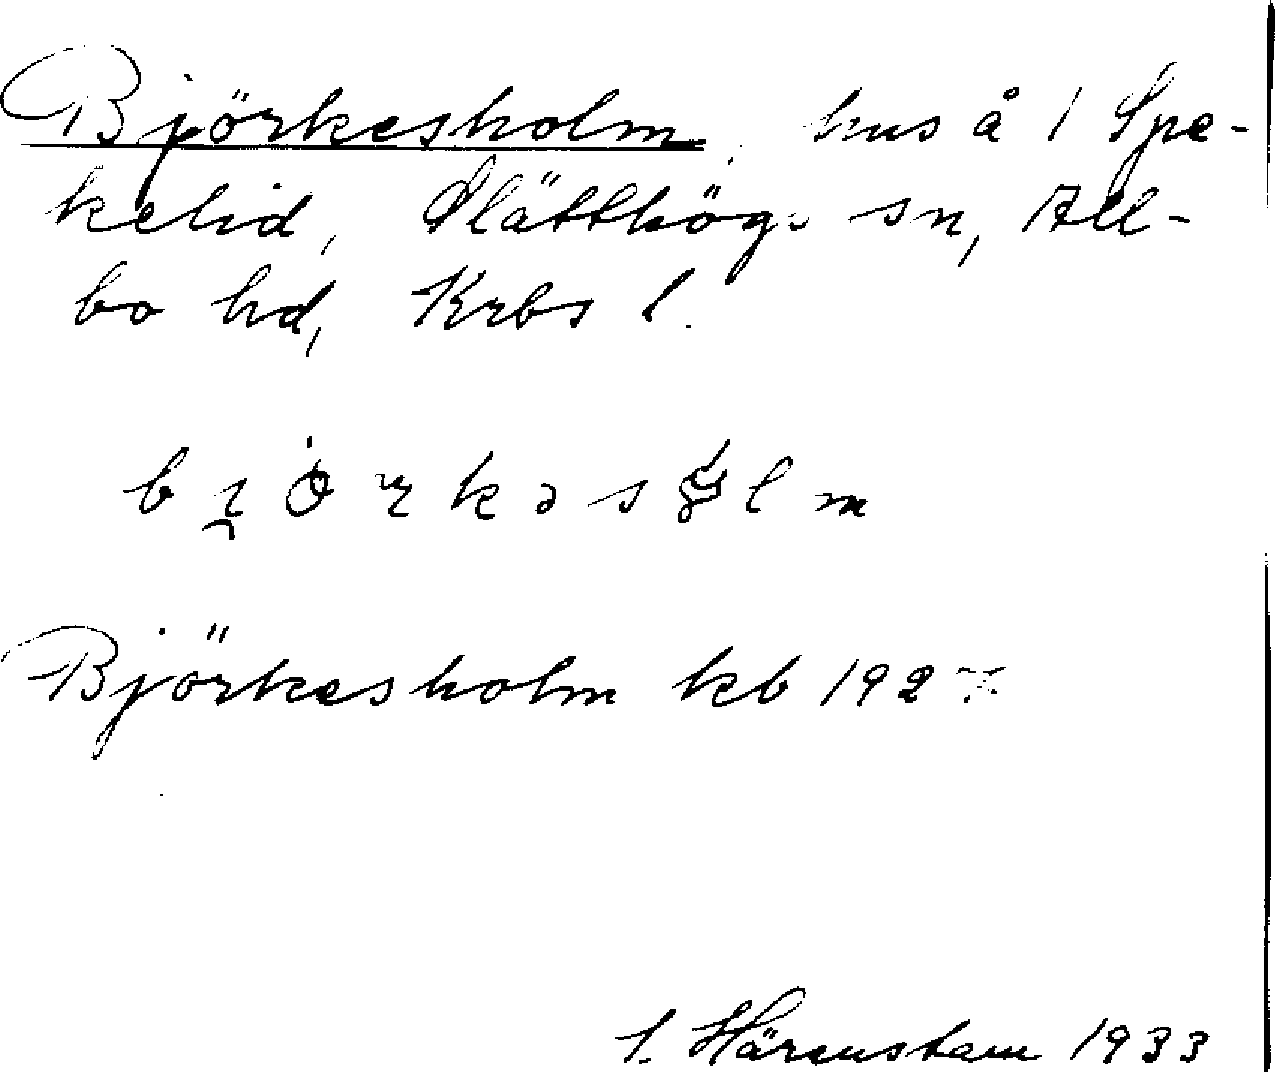 Björkesholm, hus å 1 Spe-
kelid, Slätthögs sn, All-
bo hd, Krbs l.
Björkesholm kb 192
S. Härenstam 1933